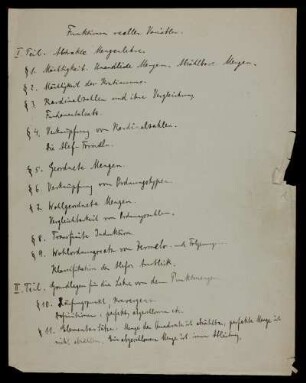 Funktionen reeller Variabler.
I. Teil. Abstrakte Mengenlehre.
§ 1. Mächtigkeit. Unendliche Mengen. Abzählbare Mengen.
§ 2. Mächtigkeit des Kontinuums.
§ 3. Kardinalzahlen und ihre Vergleichung
Fundamentalsatz.
§ 4. Verknüpfung von Kardinalzahlen.
Die Alef-Formeln.
§ 5. Geordnete Mengen
§ 6 Verknüpfung von Ordnungstypen.
§ 7. Wohlgeordnete Mengen.
Vergleichbarkeit von Ordnungszahlen.
§ 8. Transfinite Induktion
§ 9. Wohlordnungssatz von Zermelo und Folgerung
Klassifikation der Alefs. Ausblick.
II. Teil. Grundlagen für die Lehre von den Punktmengen.
§ 10. Häufungspunkt, Konvergenz.
Definitionen: perfekt, abgeschlossen etc.
§ 11. Elementare Sätze. Menge der abzählbar, perfekte Menge ist
nicht abzählbar. Menge ist Ableitung.